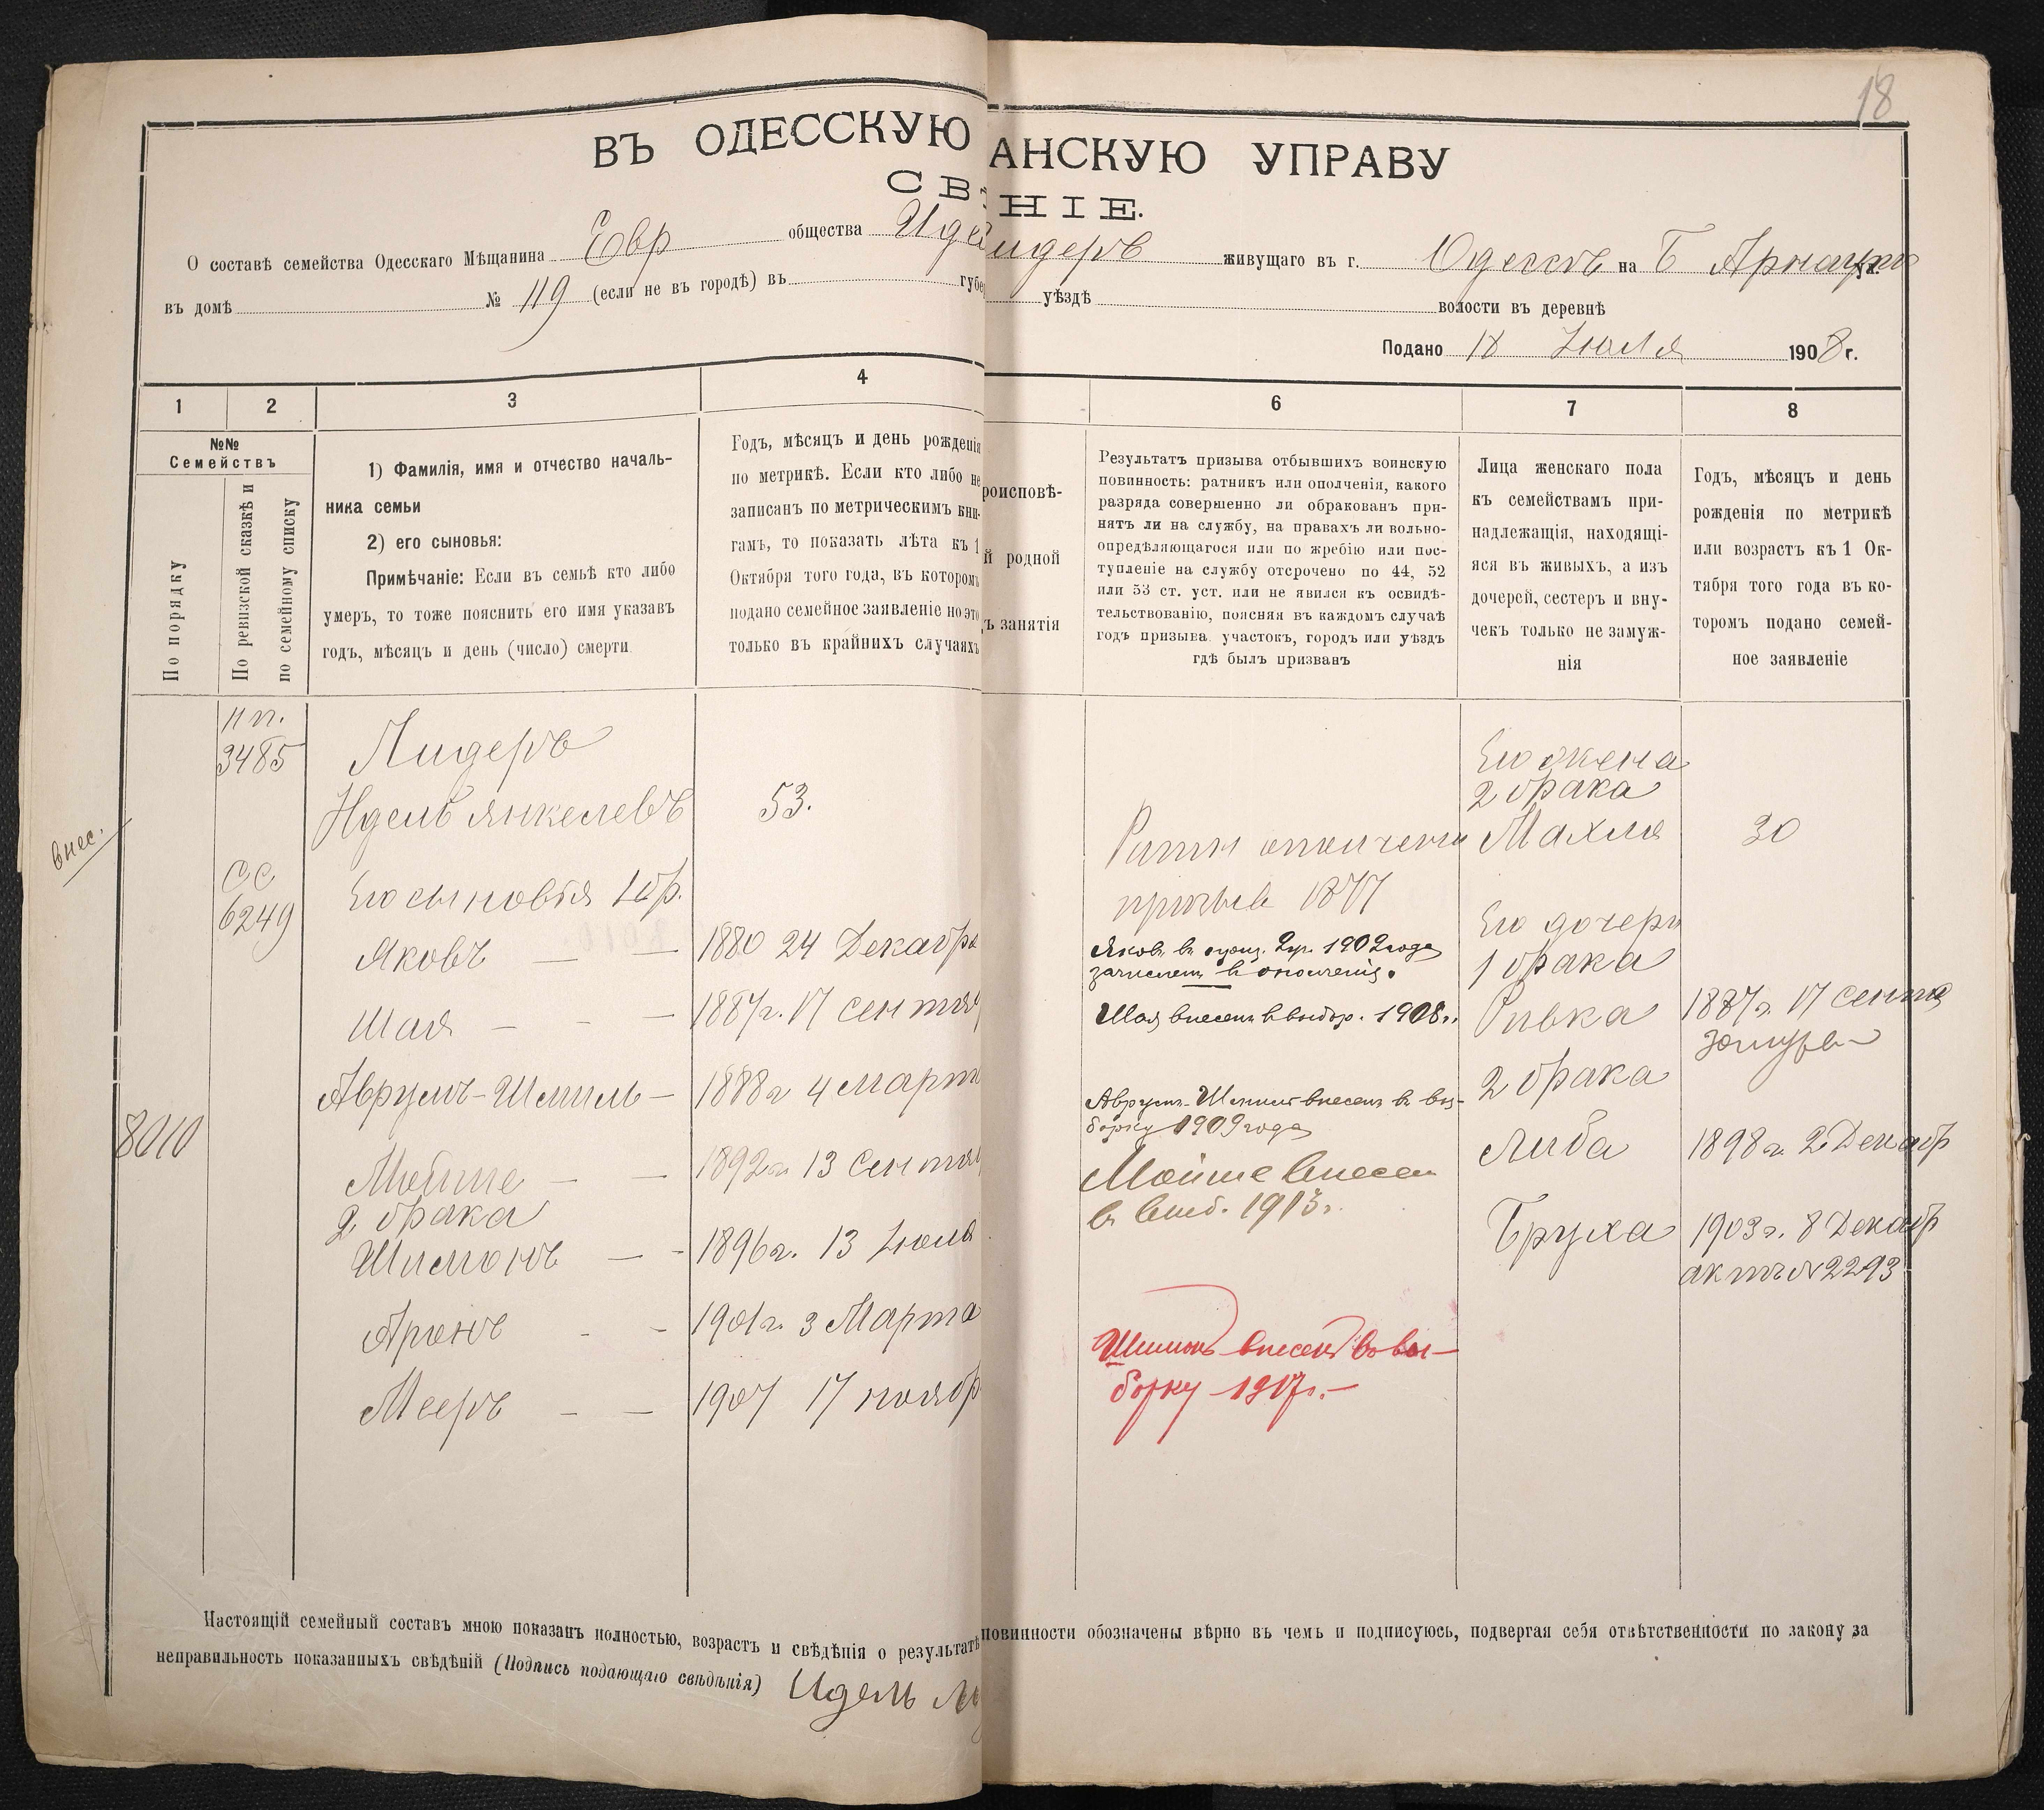 18
ВЪ ОДЕССКУЮ АНСКУЮ УПРАВУ
СВ НІЕ.
О составѣ семейства Одесскаго Мѣщанина Евр общества Идел идеръ живущаго въ г. Одессѣ на Б Арнаут
въ домѣ № 119 (если не въ городѣ) въ губе уѣздѣ волости въ деревнѣ
Подано 18 Июля 1908 г.
1 2 3 4 6 7 8
№№
Семействъ
По порядку
По ревизской сказкѣ и
по семейному списку
1) Фамилія, имя и отчество началь-
ника семьи
2) его сыновья:
Примѣчаніе: Если въ семьѣ кто либо
умеръ, то тоже пояснить его имя указавъ
годъ, мѣсяцъ и день (число) смерти
Годъ, мѣсяцъ и день рожденія
по метрикѣ. Если кто либо не
записанъ по метрическимъ кни-
гамъ, то показать лѣта къ 1
Октября того года, въ которомъ
подано семейное заявленіе но это
только въ крайнихъ случаяхъ
роисповѣ-
й родной
ъ занятія
Результатъ призыва отбывшихъ воинскую
повинность: ратникъ или ополченія, какого
разряда совершенно ли обракованъ при-
нятъ ли на службу, на правахъ ли вольно-
опредѣляющагося или по жребію или пос-
тупленіе на службу отсрочено по 44, 52
или 53 ст. уст. или не явился къ освидѣ-
тельствованію, поясняя въ каждомъ случаѣ
годъ призыва участокъ, городъ или уѣздъ
гдѣ былъ призванъ
Лица женскаго пола
къ семействамъ при-
надлежащія, находящі-
яся въ живыхъ, а изъ
дочерей, сестеръ и вну-
чекъ только не замуж-
нія
Годъ, мѣсяцъ и день
рожденія по метрикѣ
или возрастъ къ 1 Ок-
тября того года въ ко-
торомъ подано семей-
ное заявленіе
внес.
8010
3485
СС
6249
Лидеръ
Идель Янкелевъ 53.
Его сыновья 1 бр.
Яковъ — — 1880 24 Декабря
Шая — — — 1887 г. 17 сентя
Аврумъ-Шмиль — 1888 г 4 марта
Мойше — — 1892 г. 13 сентя
2 брака
Шимонъ — — 1896 г. 13 Июля
Аронъ — — 1901 г. 3 Марта
Мееръ — — 1907 17 ноябр
Ратн ополчени
призыв 1877
Яковъ въ 1902 года
зачисленъ в ополчение.
Шая внесенъ в выбор. 1908 г.
Аврумъ-Шмиль внесенъ въ вы-
борку 1909 года
Мойше внесен
в выб. 1913 г.
Шимонъ внесенъ во вы-
борку 1917 г. —
Его жена
2 брака
Махля 30
Его дочери
1 брака
Ривка 1887 г. 17 сентя
замуж
2 брака
Либа 1898 г. 2 Декабр
Бруха 1903 г. 8 Декабр
актъ № 2293
Настоящій семейный составъ мною показанъ полностью, возрастъ и свѣдѣнія о результатѣ повинности обозначены вѣрно въ чемъ и подписуюсь, подвергая себя отвѣтственности по закону за
неправильность показанныхъ свѣдѣній (Подпись подающаго свѣдѣнія) Идель Ли